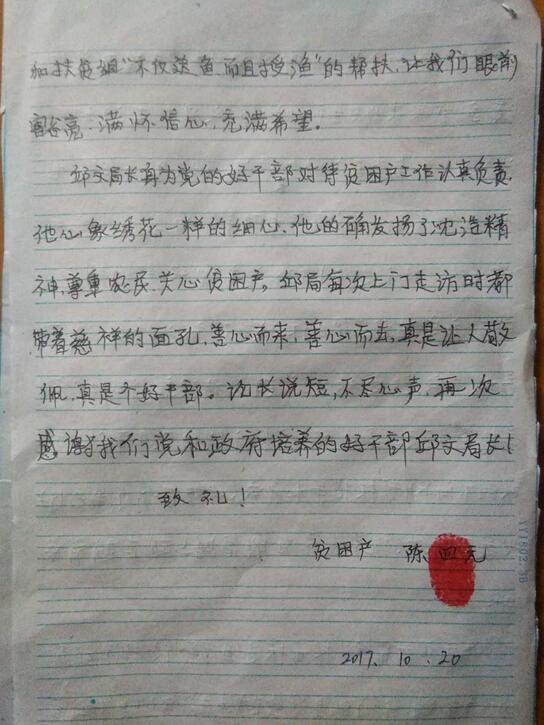 加扶贫组“不仅送鱼,而且授渔”的帮扶,让我们眼前
豁亮.满怀信心,充满希望。
邱文局长身为党的好干部对待贫困户工作认真负责.
他心象绣花一样的细心.他的确发扬了沈浩精
神,尊重农民.关心贫困户。邱局每次上门走访时都
带着慈祥的面孔,善心而来,善心而去,真是让人敬
佩,真是个好干部。话长说短,不尽心声,再次
感谢我们党和政府培养的好干部邱文局长!
致礼!
贫困户 陈四元
2017. 10. 20